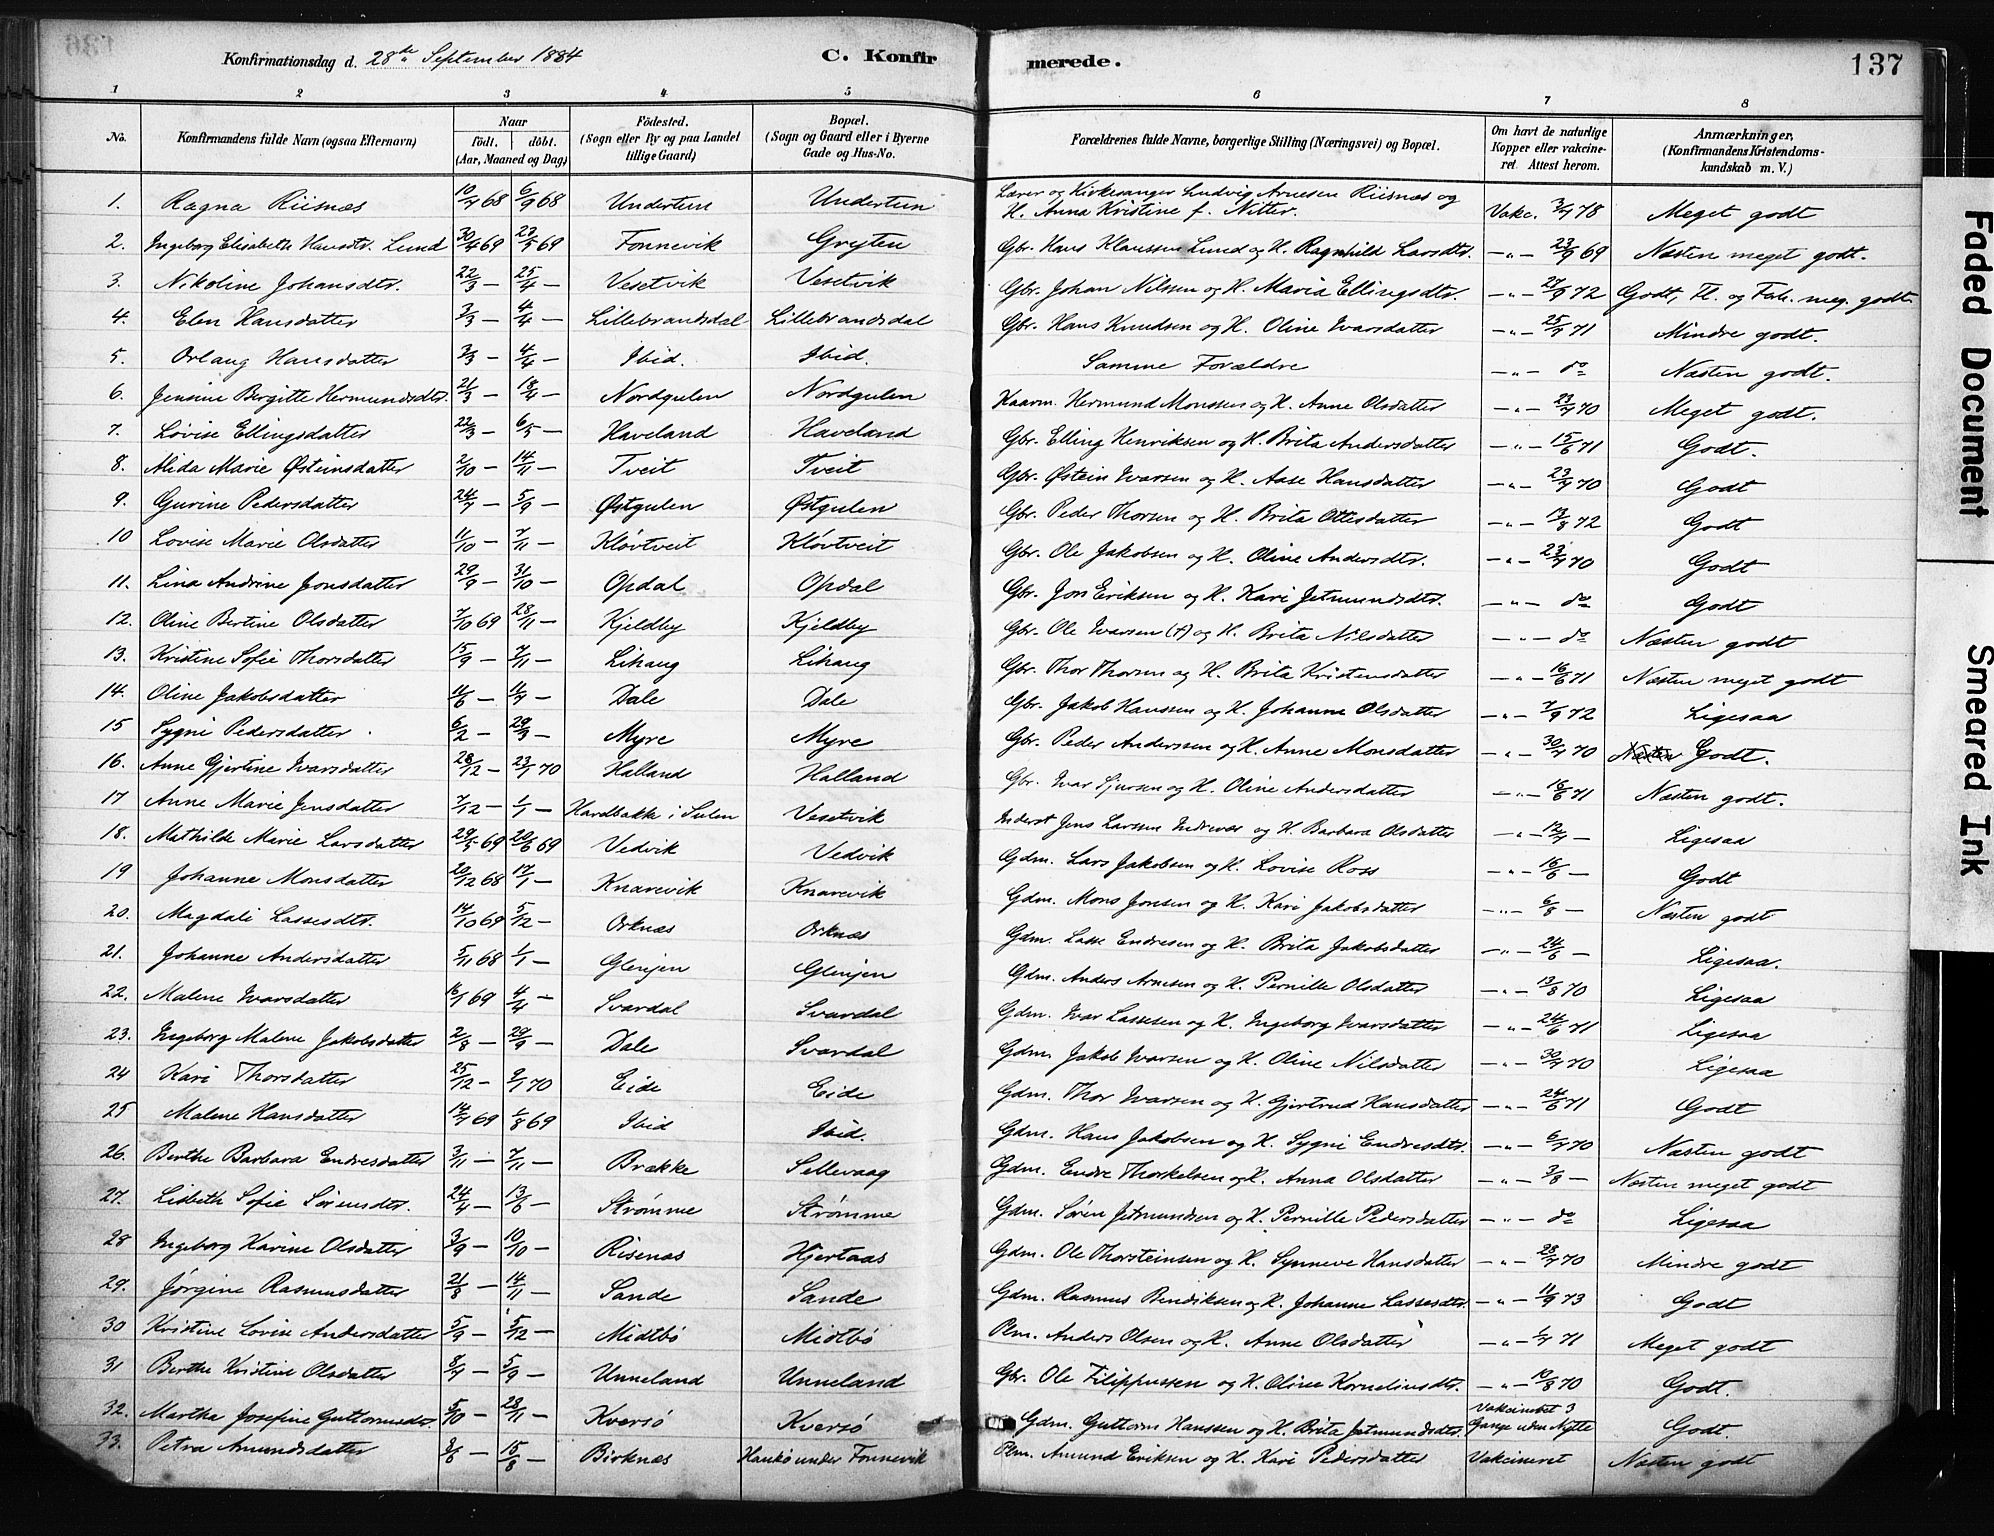 136
Konfirmationsdag d. 28de September 1884
C. Konfir
merede.
137
1 2 3 4 5 6 7 8
No. Konfirmandens fulde Navn (ogsaa Efternavn) Naar födt. döbt. (Aar, Maaned og Dag) Födested. (Sogn eller By og paa Landet tillige Gaard) Bopæl. (Sogn og Gaard eller i Byerne Gade og Hus-No. Forældrenes fulde Navne, borgerlige Stilling (Næringsvei) og Bopæl. Om havt de naturlige Kopper eller vakcineret. Attest herom. Anmærkninger, (Konfirmandens Kristendomskundskab m. V.)
1. Ragna Riisnæs 10/7 68 6/9 68 Undertun Undertun Lærer og Kirkesanger Ludvig Arnesen Riisnæs og H. Anna Kristine f. Nitter. Vakc. 3/7 78 Meget godt
2. Ingeborg Elisabeth Hansdtr. Lund 30/4 69 23/5 69 Fonnevik Grejten Gbr. Hans Klaussen Lund og H. Ragnhild Larsdtr. —"— 23/9 69 Næsten meget godt.
3. Nikoline Johansdtr. 22/3 — 25/4 — Vesetvik Vesetvik Gbr. Johan Nilssen og H. Maria Ellingsdtr. —"— 27/9 72 Godt, Fl. og Fah. meg. godt.
4. Elen Hansdatter 3/3 — 4/4 — Lillebrandsdal Lillebrandsdal Gbr. Hans Knudsen og H. Oline Ivarsdatter —"— 25/7 71 Mindre godt.
5. Orlaug Hansdatter 3/3 — 4/4 — Ibid. Ibid. Samme Forældre —"— do Næsten godt.
6. Jensine Bergitte Hermundsdtr. 21/3 — 18/4 — Nordgulen Nordgulen Kaarm. Hermund Monssen og H. Anne Olsdatter —"— 23/7 70 Meget godt.
7. Lovise Ellingsdatter 22/3 — 6/5 — Haveland Haveland Gbr. Elling Henriksen og H. Brita Andersdatter —"— 15/6 71 Godt.
8. Alida Marie Østeinsdatter 2/10 — 14/11 — Tveit Tveit Gbr. Østein Ivarsen og H. Aase Hansdatter —"— 23/7 70 Godt
9. Gurine Pedersdatter 24/7 — 5/9 — Østgulen Østgulen Gbr. Peder Thorsen og H. Brita Ottesdatter —"— 13/8 72 Godt
10 Lovise Marie Olsdatter 11/10 — 7/11 — Kløvtveit Kløvtveit Gbr. Ole Jakobsen og H. Oline Andersdtr. —"— 23/7 70 Godt
11. Lina Andrine Jonsdatter 29/9 — 31/10 — Opdal Opdal Gbr. Jon Eriksen og H. Kari Jetmundsdtr. —"— do Godt
12. Oline Bertine Olsdatter 7/10 69 28/11 — Kjeldby Kjeldby Gbr. Ole Ivarsen (†) og H. Brita Nilsdatter —"— do Næsten godt
13. Kristine Sofie Thorsdatter 15/9 — 7/11 — Lihaug Lihaug Gbr. Thor Thorsen og H. Brita Kristensdatter —"— 16/6 71 Næsten meget godt
14. Oline Jakobsdatter 11/6 — 11/7 — Dale Dale Gbr. Jakob Hanssen og H. Johanne Olsdatter —"— 7/9 72 Ligesaa
15 Sygni Pedersdatter 6/2 — 29/3 — Myre Myre Gbr. Peder Anderssen og H. Anne Monsdatter —"— 30/7 70 Næsten Godt.
16. Anne Gjertine Ivarsdatter 28/12 — 23/1 70 Halland Halland Gbr. Ivar Sjursen og H. Oline Andersdatter —"— 16/6 71 Næsten godt.
17 Anne Marie Jensdatter 7/12 — 1/1 — Hardbakke i Sulen Vesetvik Inderst Jens Larsen Indrevær og H. Barbara Olsdatter —"— 12/7 — Ligesaa
18. Mathilde Marie Larsdatter 29/5 69 20/6 69 Vedvik Vedvik Gdm. Lars Jakobsen og H. Lovise Ross —"— 16/6 — Godt
19 Johanne Monsdatter 20/12 68 17/1 — Knarevik Knarevik Gdm. Mons Jonsen og H. Kari Jakobsdatter —"— 6/8 — Næsten godt
20. Magdali Lassesdtr. 14/10 69 5/12 — Orknæs Orknæs Gdm. Lasse Endresen og H. Brita Jakobsdatter —"— 24/6 — Ligesaa.
21. Johanne Andersdatter 5/11 68 1/1 — Glenjen Glenjen Gdm. Anders Arnesen og H. Pernille Olsdatter —"— 13/8 70 Ligesaa
22. Malene Ivarsdatter 16/1 69 4/4 — Svardal Svardal Gdm. Ivar Lassesen og H. Ingeborg Ivarsdatter —"— 24/6 71 Ligesaa
23. Ingeborg Malene Jakobsdatter 2/8 — 29/9 — Dale Svardal Gdm. Jakob Ivarsen og H. Oline Nilsdatter —"— 30/7 70 Ligesaa
24 Kari Thorsdatter 25/12 — 9/1 70 Eide Eide Gdm. Thor Ivarsen og H. Gjertrud Hansdatter —"— 24/6 71 Godt
25 Malene Hansdatter 14/7 69 1/8 69 Ibid Ibid. Gdm. Hans Jakobsen og H. Sygni Endresdtr. —"— 6/7 70 Næsten godt
26. Berthe Barbara Endresdatter 3/11 — 7/11 — Brække Sellevaag Gdm. Endre Thorkelsen og H. Anna Olsdatter —"— 3/8 — Næsten meget godt
27. Lisbeth Sofie Sørensdtr. 24/4 — 13/6 — Strømme Strømme Gdm. Søren Jetmundsen og H. Pernille Pedersdatter —"— do Ligesaa
28 Ingeborg Karine Olsdatter 3/9 — 10/10 — Risenæs Hjertaas Gdm. Ole Thorsteinsen og H. Synneve Hansdatter —"— 28/7 70 Mindre godt
29. Jørgine Rasmusdatter 21/8 — 14/11 — Sande Sande Gdm. Rasmus Bendiksen og H. Johanne Lassesdtr. —"— 11/9 73 Godt
30 Kristine Lovise Andersdatter 5/9 — 5/12 — Midtbø Midtbø Plm. Anders Olsen og H. Anne Olsdatter —"— 1/7 71 Meget godt
31 Berthe Kristine Olsdatter 8/7 — 5/9 — Unneland Unneland Gbr. Ole Filippussen og H. Oline Korneliusdtr. —"— 10/8 70 Godt.
32. Martha Josefine Guttormsdtr. 5/10 — 28/11 — Kversø Kversø Gdm. Guttorm Hanssen og H. Brita Jetmundsdtr. Vakcineret 3 Gange uden Nytte Godt.
33. Petra Amundsdatter 3/6 — 15/8 — Birknæs Haukø under Fonnevik Plm. Amund Eriksen og H. Kari Pedersdatter Vakcineret Næsten godt
Faded Document
Smeared Ink